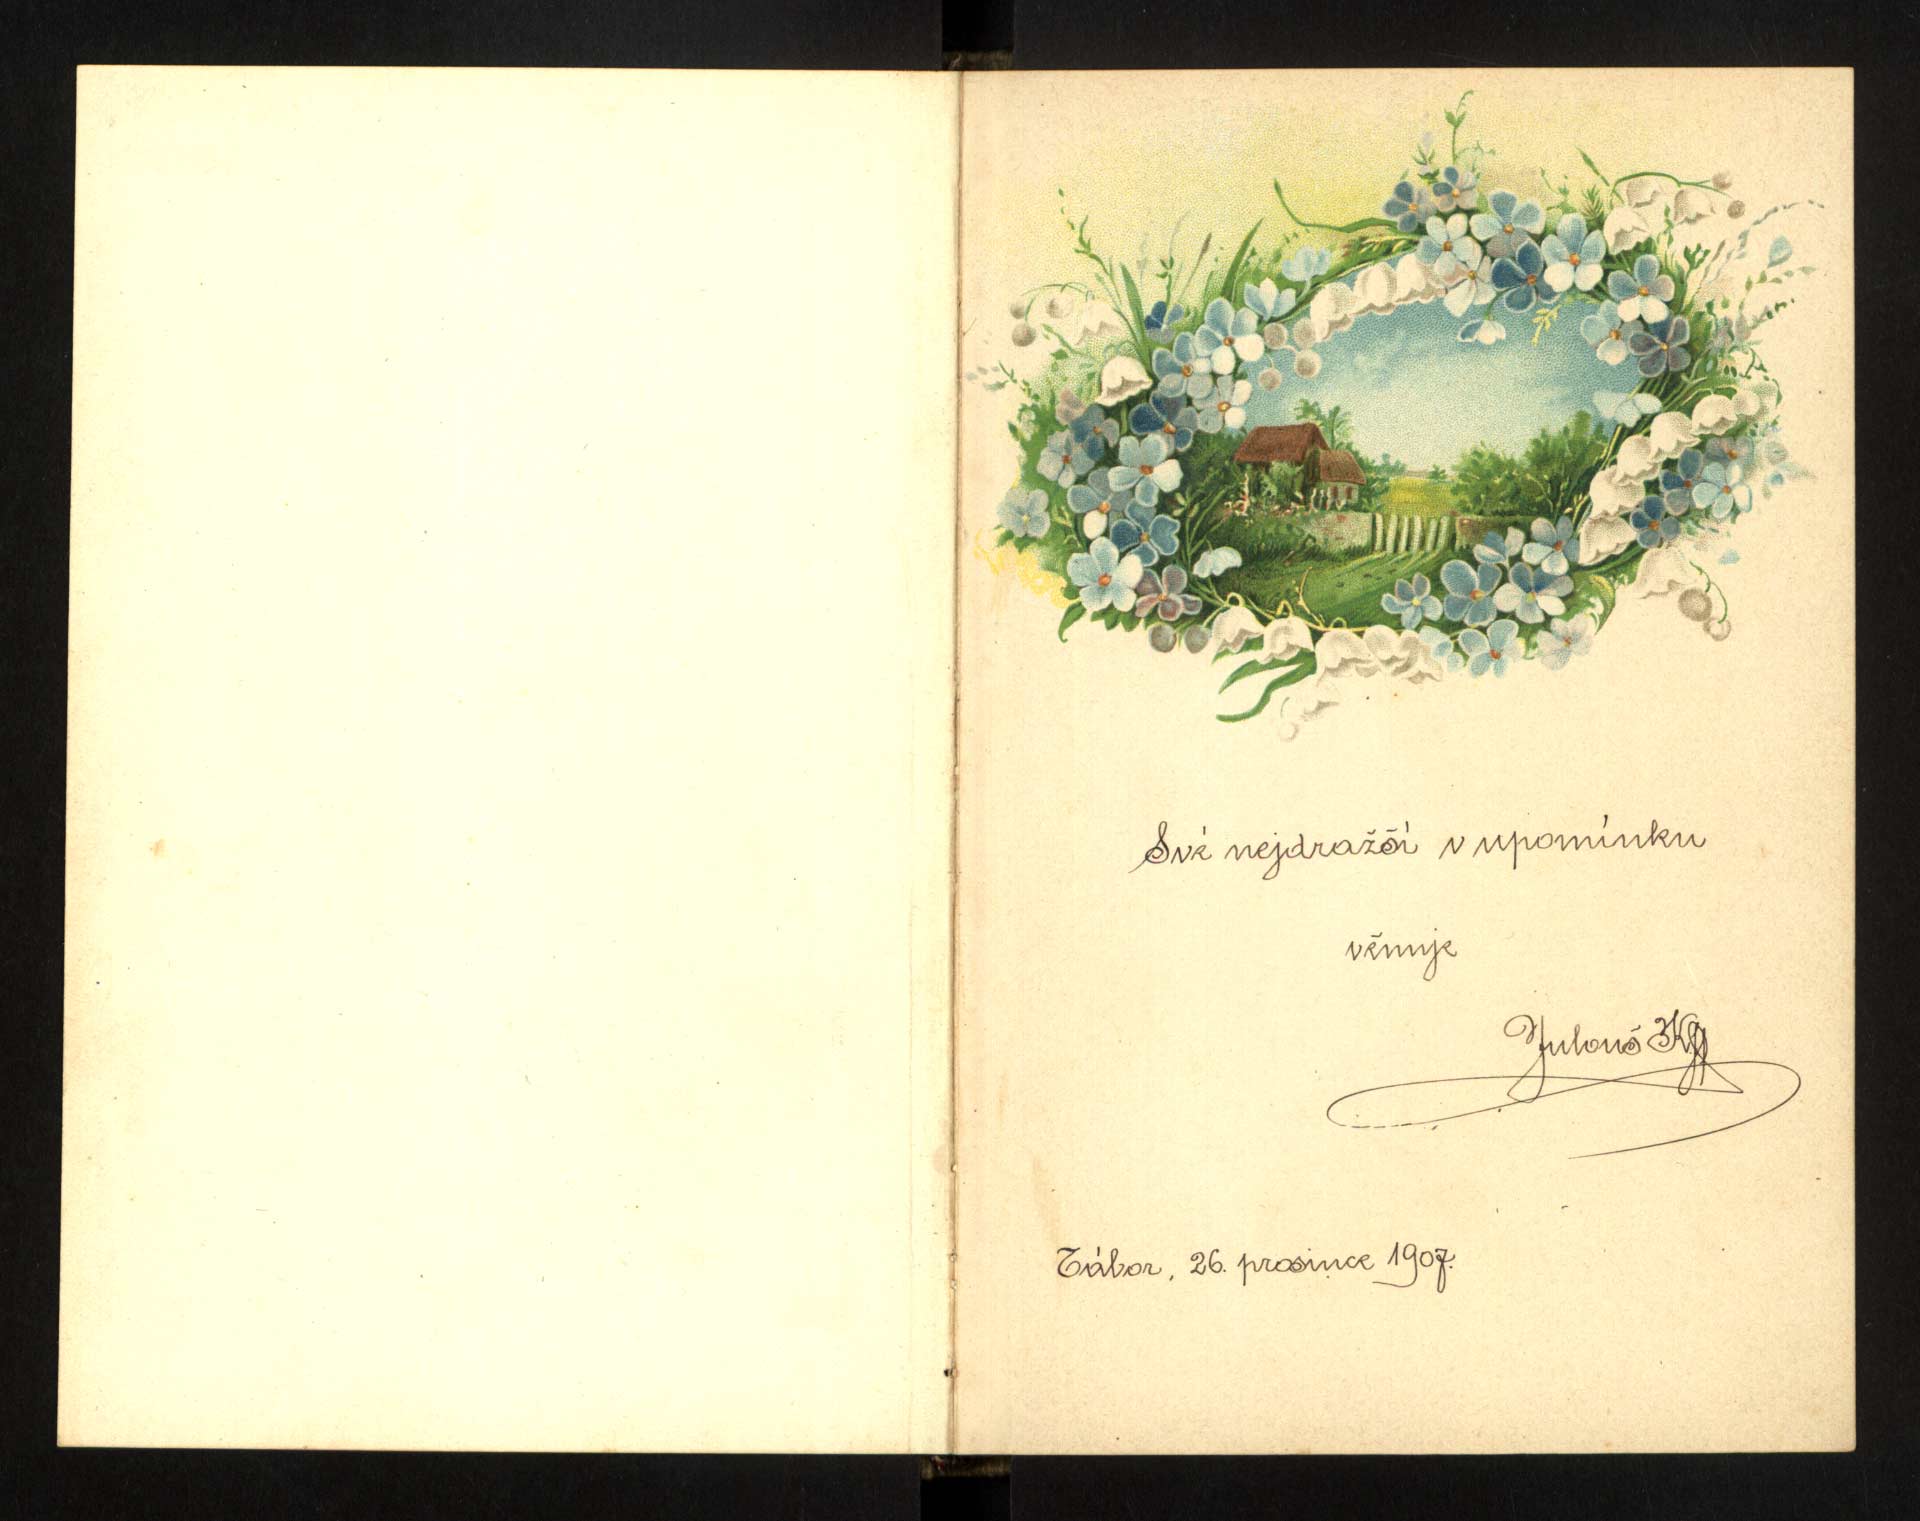 Své nejdražší v upomínku
věnuje
Julouš
Tábor, 26. prosince 1907.